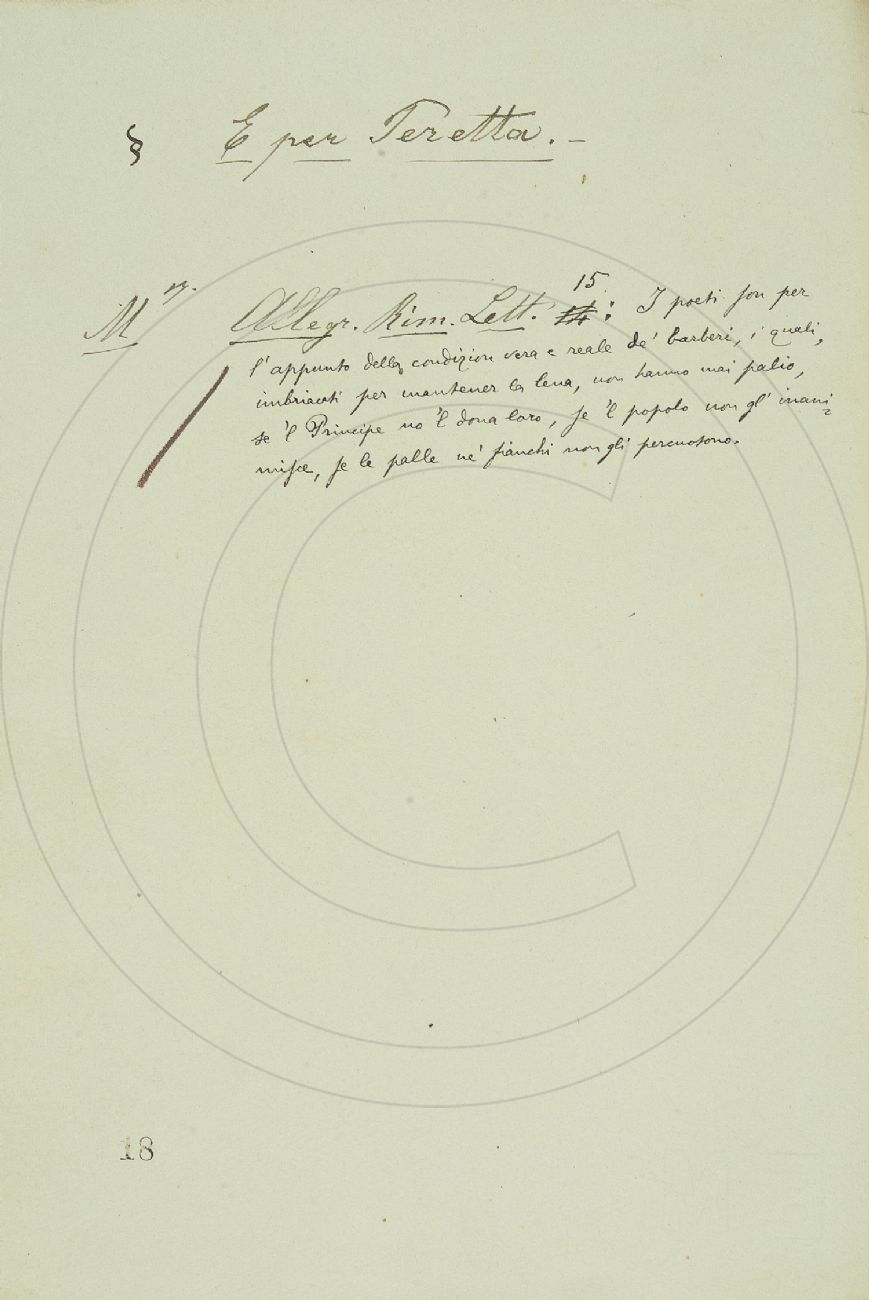 § E per Teretta. –
M m. Allegr. Rim. Lett. 15 : I poeti son per
l'appunto della condizion vera e reale de' barberi, i quali,
imbriacati per mantener la lena, non hanno mai palio,
se 'l Principe no 'l dona loro, se 'l popolo non gl' inani=
misce, se le palle ne' fianchi non gli percuotono.
18